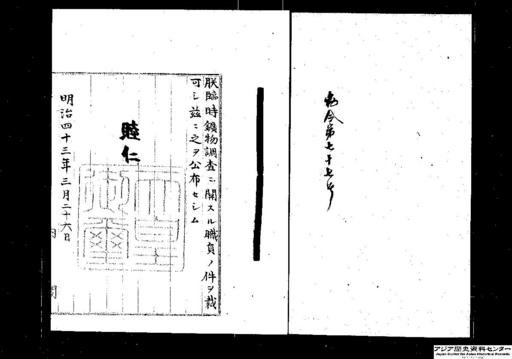 勅令第七十七号
朕臨時鑛物調査ニ關スル職員ノ件ヲ裁
可シ茲ニ之ヲ公布セシム
睦仁
天皇御璽
明治四十三年三月二十六日
内閣
アジア歴史資料センター
Japan Center for Asian Historical Records